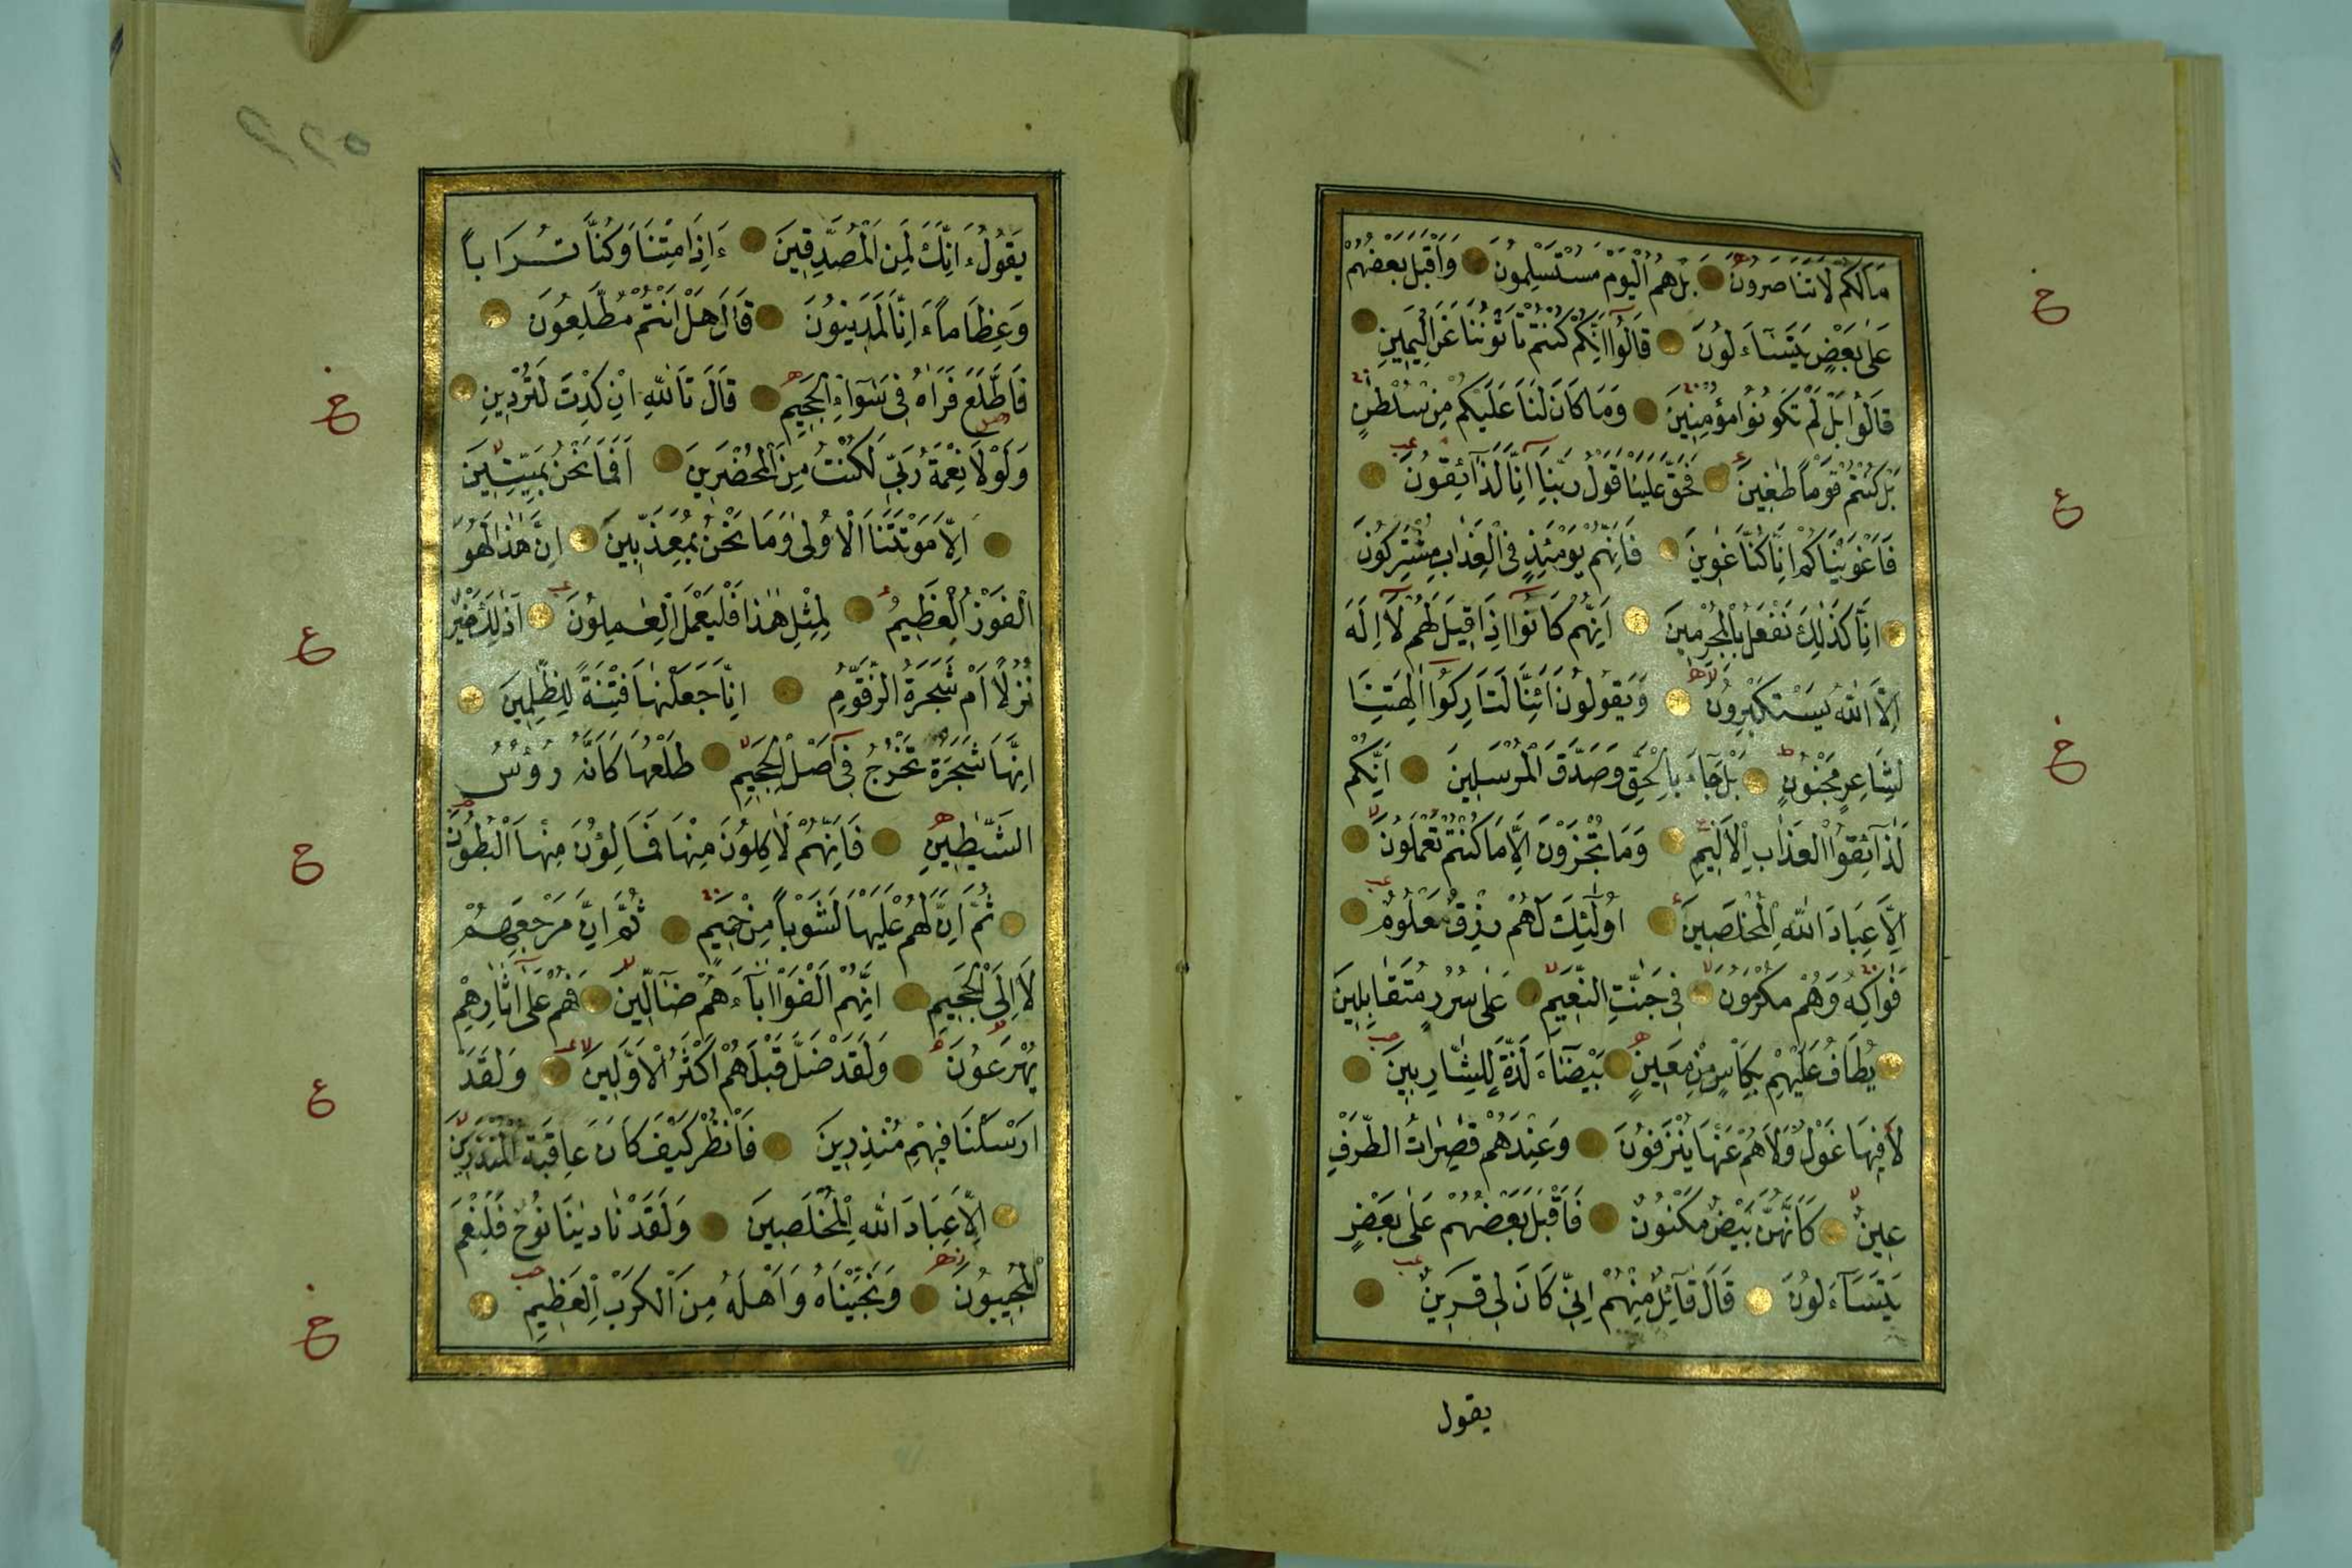 مَالَكُمْ لَا تَنَاصَرُونَ بَلْ هُمُ الْيَوْمَ مُسْتَسْلِمُونَ وَاَقْبَلَ بَعْضُهُمْ
عَلٰى بَعْضٍ يَتَسَآءَلُونَ قَالُٓوا اِنَّكُمْ كُنْتُمْ تَأْتُونَنَا عَنِ الْيَمِينِ
قَالُوا بَلْ لَمْ تَكُونُوا مُؤْمِنِينَ وَمَا كَانَ لَنَا عَلَيْكُمْ مِنْ سُلْطٰنٍ
بَلْ كُنْتُمْ قَوْماً طٰغِينَ فَحَقَّ عَلَيْنَا قَوْلُ رَبِّنَٓا اِنَّا لَذَٓائِقُونَ
فَاَغْوَيْنَاكُمْ اِنَّا كُنَّا غٰوِينَ فَاِنَّهُمْ يَوْمَئِذٍ فِى الْعَذَابِ مُشْتَرِكُونَ
اِنَّا كَذٰلِكَ نَفْعَلُ بِالْمُجْرِمِينَ اِنَّهُمْ كَانُٓوا اِذَا قِيلَ لَهُمْ لَٓا اِلٰهَ
اِلَّا اللّٰهُ يَسْتَكْبِرُونَ وَيَقُولُونَ اَئِنَّا لَتَارِكُٓوا اٰلِهَتِنَا
لِشَاعِرٍ مَجْنُونٍ بَلْ جَآءَ بِالْحَقِّ وَصَدَّقَ الْمُرْسَلِينَ اِنَّكُمْ
لَذَٓائِقُوا الْعَذَابِ الْاَلِيمِ وَمَا تُجْزَوْنَ اِلَّا مَا كُنْتُمْ تَعْمَلُونَ
اِلَّا عِبَادَ اللّٰهِ الْمُخْلَصِينَ اُولٰٓئِكَ لَهُمْ رِزْقٌ مَعْلُومٌ
فَوَاكِهُ وَهُمْ مُكْرَمُونَ فِى جَنّٰتِ النَّعِيمِ عَلٰى سُرُرٍ مُتَقَابِلِينَ
يُطَافُ عَلَيْهِمْ بِكَأْسٍ مِنْ مَعِينٍ بَيْضَآءَ لَذَّةٍ لِلشَّارِبِينَ
لَا فِيهَا غَوْلٌ وَلَا هُمْ عَنْهَا يُنْزَفُونَ وَعِنْدَهُمْ قٰصِرَاتُ الطَّرْفِ
عِينٌ كَاَنَّهُنَّ بَيْضٌ مَكْنُونٌ فَاَقْبَلَ بَعْضُهُمْ عَلٰى بَعْضٍ
يَتَسَآءَلُونَ قَالَ قَٓائِلٌ مِنْهُمْ اِنِّى كَانَ لِى قَرِينٌ
يقول
يَقُولُ ءَاِنَّكَ لَمِنَ الْمُصَدِّقِينَ ءَاِذَا مِتْنَا وَكُنَّا تُرَاباً
وَعِظَاماً ءَاِنَّا لَمَدِينُونَ قَالَ هَلْ اَنْتُمْ مُطَّلِعُونَ
فَاطَّلَعَ فَرَاٰهُ فِى سَوَٓاءِ الْجَحِيمِ قَالَ تَاللّٰهِ اِنْ كِدْتَ لَتُرْدِينِ
وَلَوْلَا نِعْمَةُ رَبِّى لَكُنْتُ مِنَ الْمُحْضَرِينَ اَفَمَا نَحْنُ بِمَيِّتِينَ
اِلَّا مَوْتَتَنَا الْاُولٰى وَمَا نَحْنُ بِمُعَذَّبِينَ اِنَّ هٰذَا لَهُوَ
الْفَوْزُ الْعَظِيمُ لِمِثْلِ هٰذَا فَلْيَعْمَلِ الْعٰمِلُونَ اَذٰلِكَ خَيْرٌ
نُزُلاً اَمْ شَجَرَةُ الزَّقُّومِ اِنَّا جَعَلْنٰهَا فِتْنَةً لِلظّٰلِمِينَ
اِنَّهَا شَجَرَةٌ تَخْرُجُ فِٓى اَصْلِ الْجَحِيمِ طَلْعُهَا كَاَنَّهُ رُؤُسُ
الشَّيٰطِينِ فَاِنَّهُمْ لَاٰكِلُونَ مِنْهَا فَمَالِؤُنَ مِنْهَا الْبُطُونَ
ثُمَّ اِنَّ لَهُمْ عَلَيْهَا لَشَوْباً مِنْ حَمِيمٍ ثُمَّ اِنَّ مَرْجِعَهُمْ
لَا اِلَى الْجَحِيمِ اِنَّهُمْ اَلْفَوْا اٰبَآءَهُمْ ضَٓالِّينَ فَهُمْ عَلٰٓى اٰثَارِهِمْ
يُهْرَعُونَ وَلَقَدْ ضَلَّ قَبْلَهُمْ اَكْثَرُ الْاَوَّلِينَ وَلَقَدْ
اَرْسَلْنَا فِيهِمْ مُنْذِرِينَ فَانْظُرْ كَيْفَ كَانَ عَاقِبَةُ الْمُنْذَرِينَ
اِلَّا عِبَادَ اللّٰهِ الْمُخْلَصِينَ وَلَقَدْ نَادٰينَا نُوحٌ فَلَنِعْمَ
الْمُجِيبُونَ وَنَجَّيْنَاهُ وَاَهْلَهُ مِنَ الْكَرْبِ الْعَظِيمِ